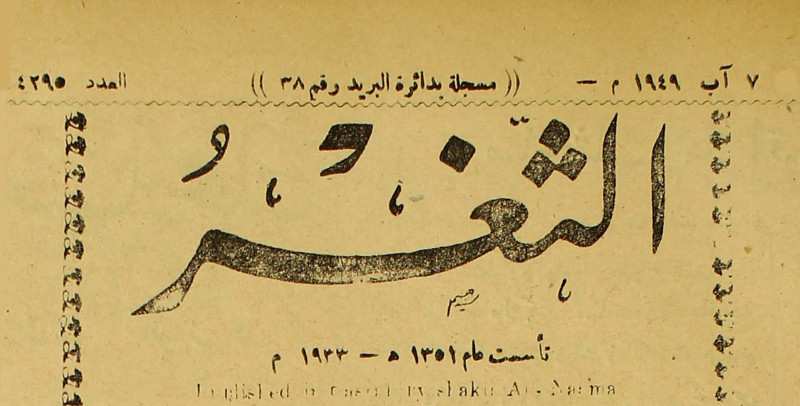 ٧ آب ١٩٤٩ م — (( مسجلة بدائرة البريد رقم ٣٨ )) العدد ٤٢٩٥
الثَّغْرُ
تأسست عام ١٣٥١ ه — ١٩٣٣ م